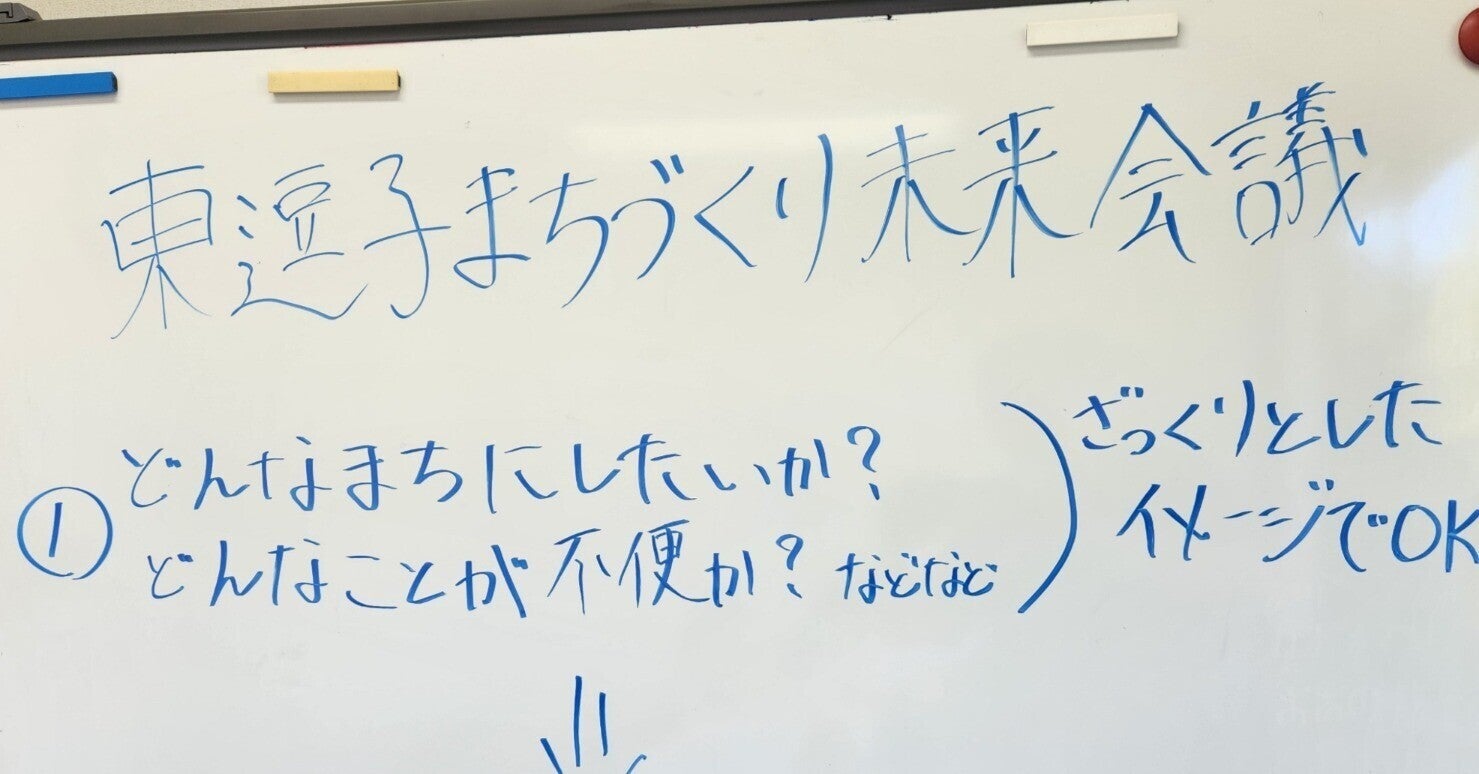 東逗子まちづくり未来会議
① どんなまちにしたいか?
どんなことが不便か? などなど
ざっくりとした
イメージでOK